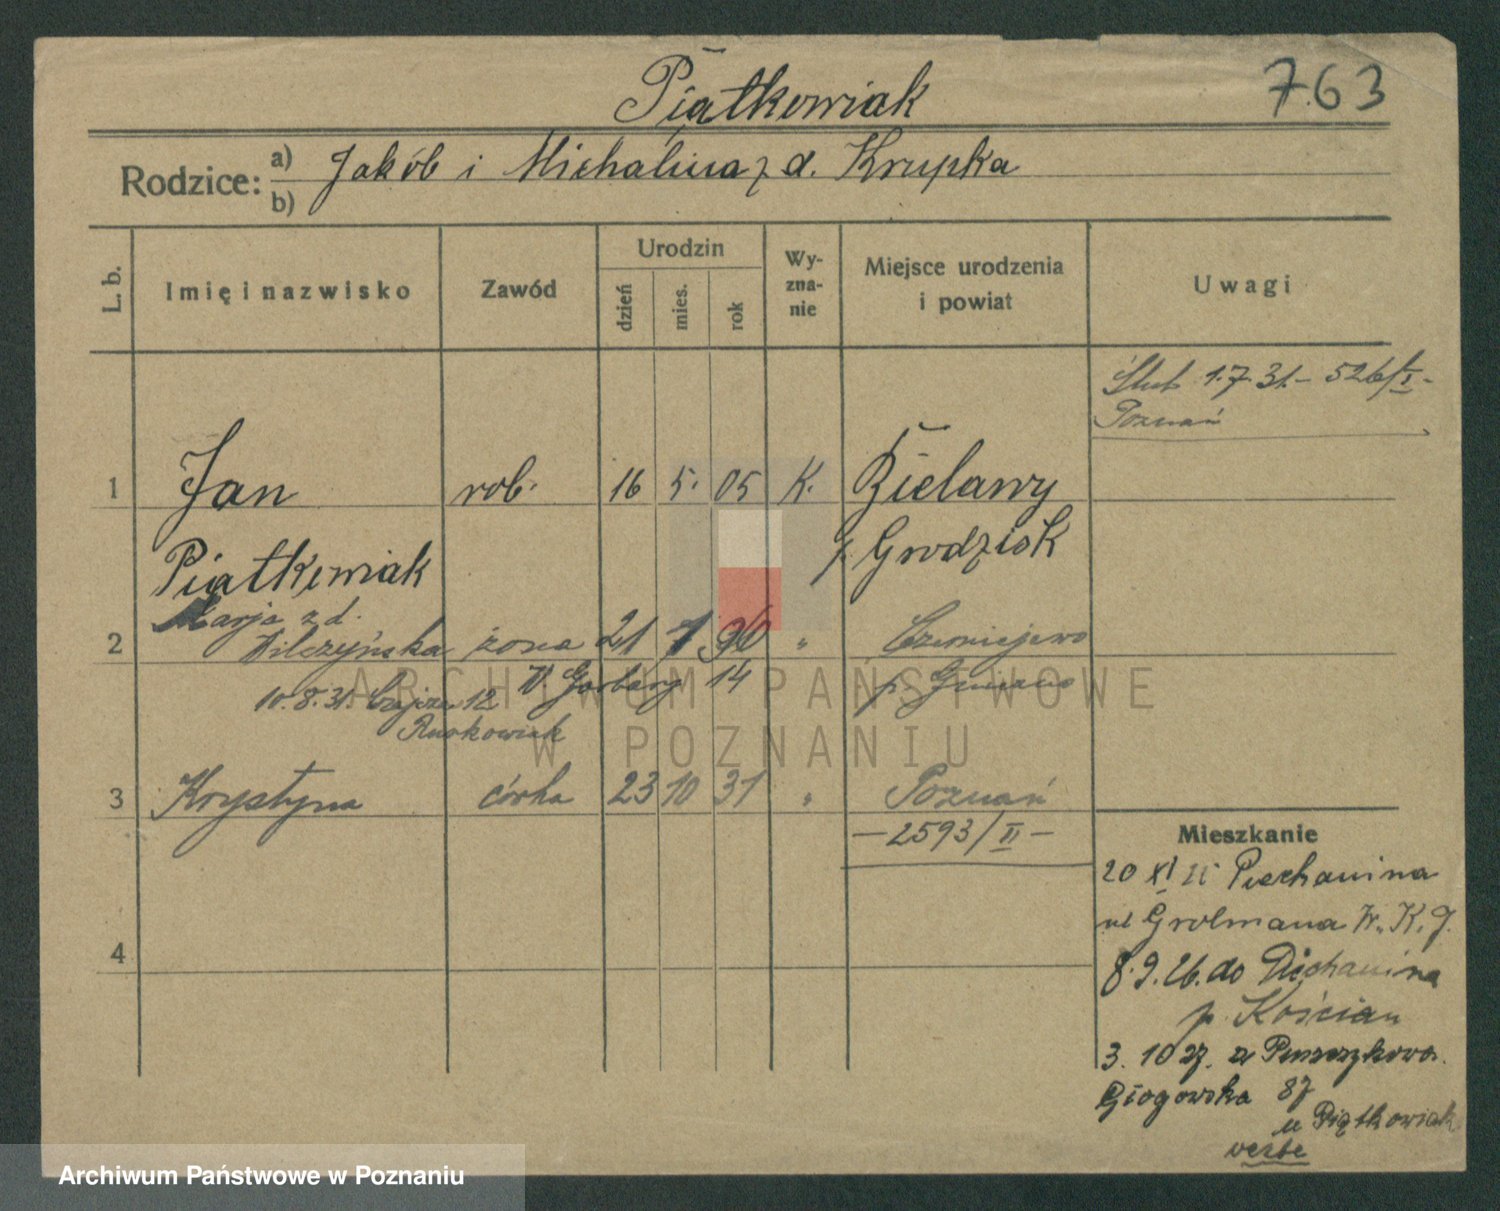 Piątkowiak
763
Rodzice: a) Jakób i Michalina z d. Krupka
b)
L. b. Imię i nazwisko Zawód Urodzin dzień mies. rok Wyznanie Miejsce urodzenia i powiat Uwagi
Ślub 1.7.31 – 526/I –
Poznań
1 Jan rob. 16 5. 05 K. Bielawy
Piątkowiak p. Grodzisk
Marja z d.
2 Wilczyńska żona 21 1 90 " Czerniejewo
10.8.31. 12 W. Garbary 14 p. Gniezno
Ruskowiak
3 Krystyna córka 23 10 31 " Poznań
– 2593/II –
4
Mieszkanie
20 XI Piechanina
ul Grolmana W. K. 9.
8.9.26. do Piechanina
p. Kościan
3. 10 27. z
Głogowska 87
u Piątkowiak
verte
ARCHIWUM PAŃSTWOWE
W POZNANIU
Archiwum Państwowe w Poznaniu